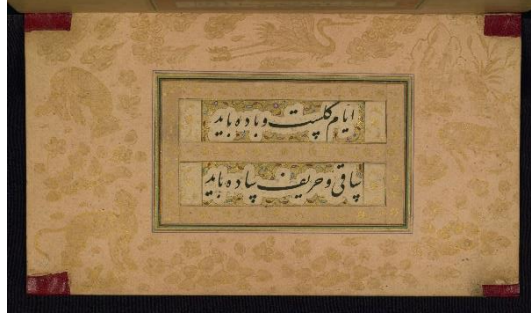 ایام گلست و باده باید
ساقی و حریف ساده باید